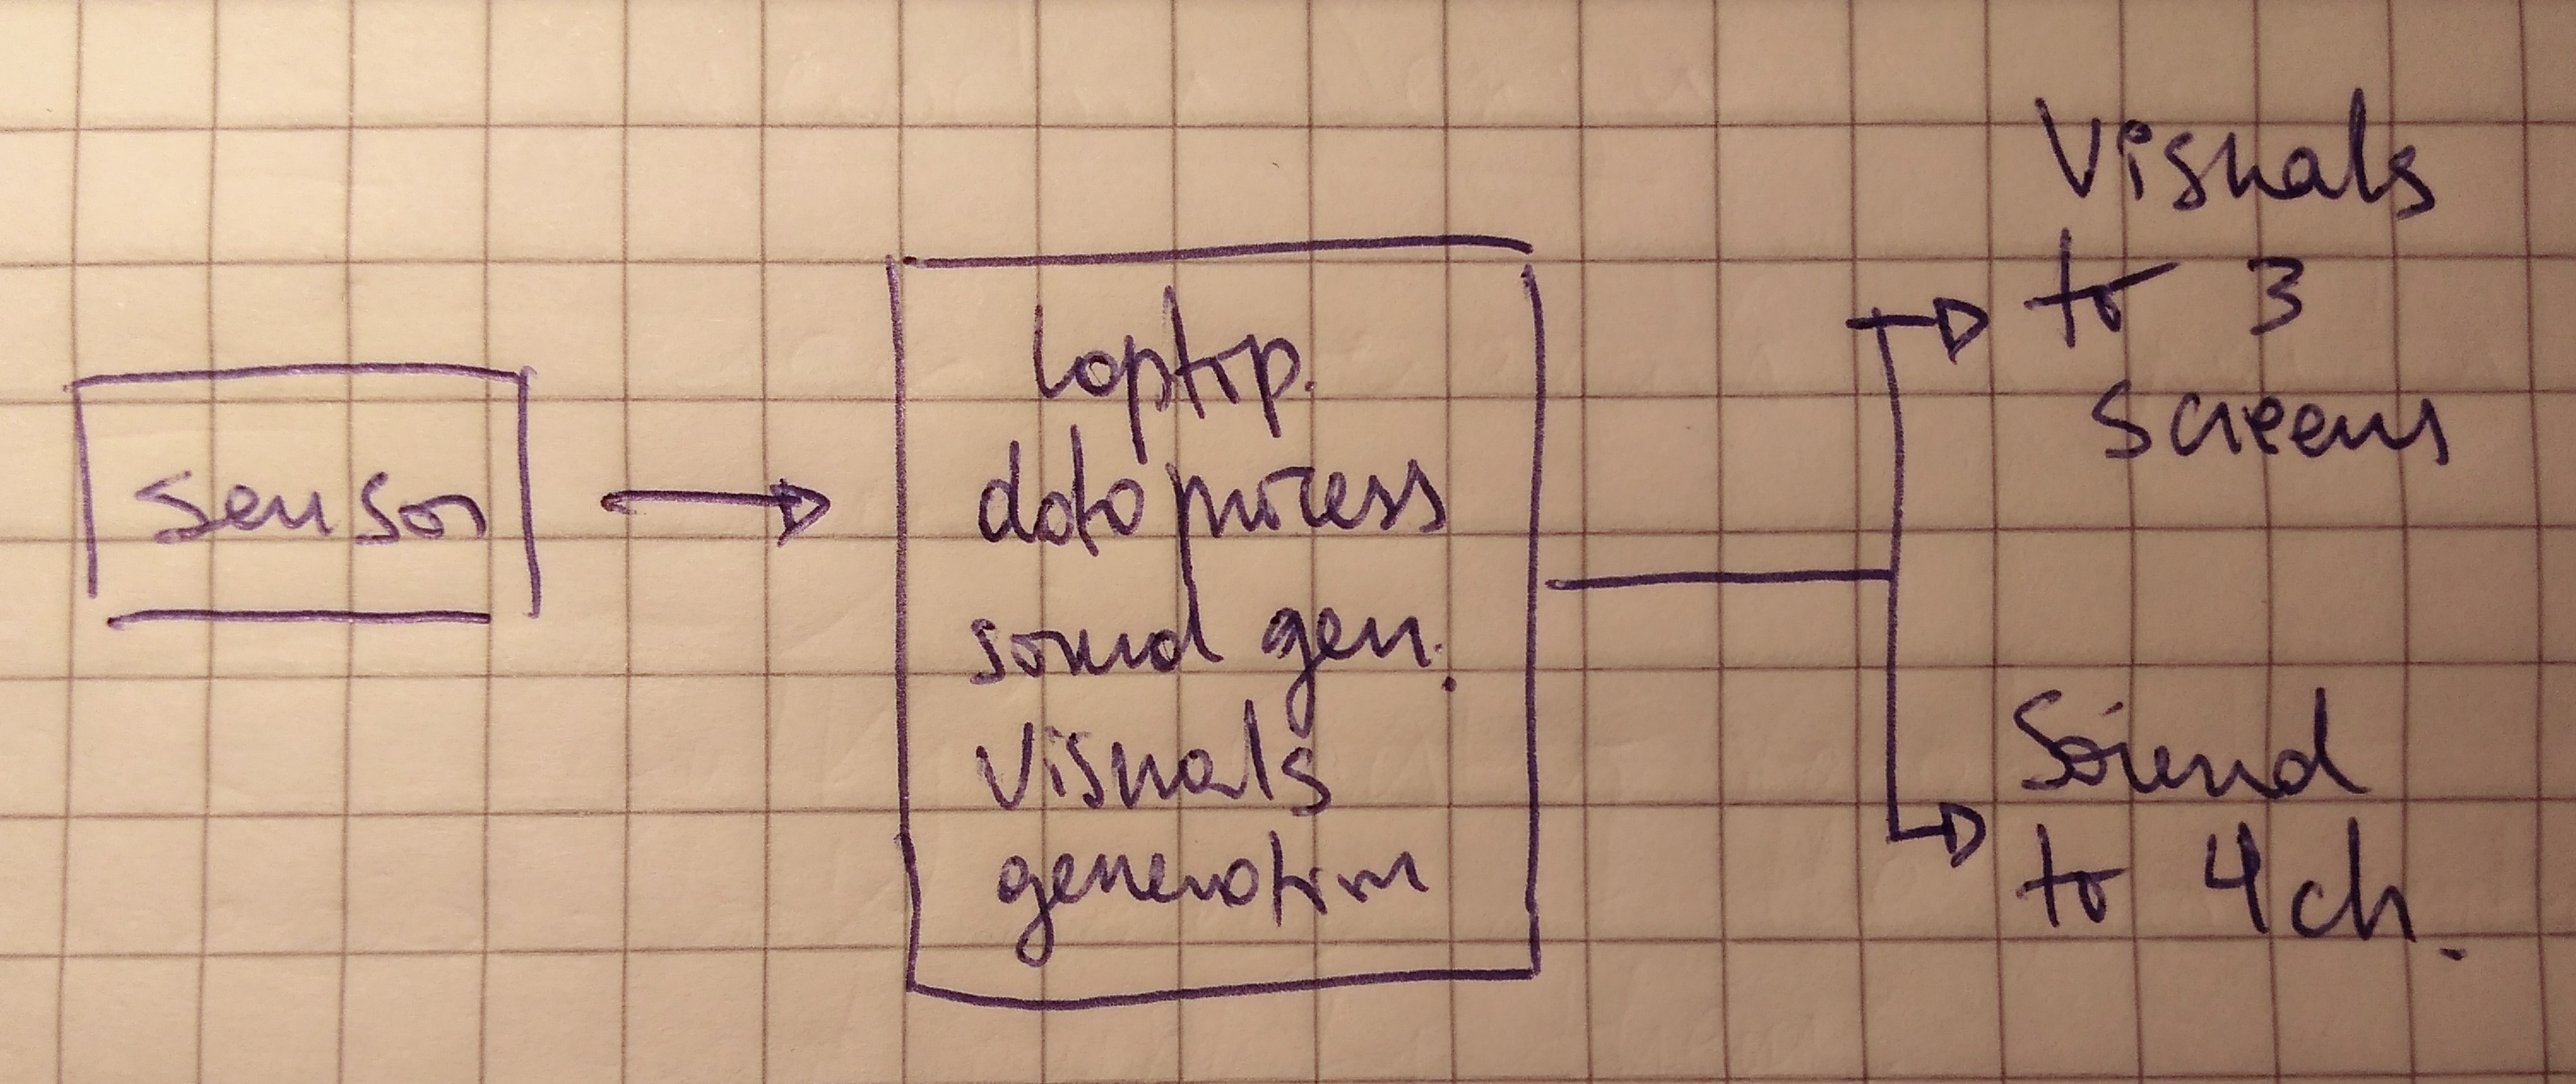 sensor
laptop.
data process
sound gen.
visuals
generation
Visuals
to 3
screens
Sound
to 4 ch.